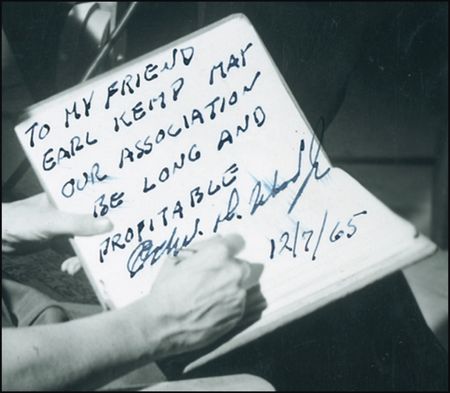 TO MY FRIEND
EARL KEMP MAY
OUR ASSOCIATION
BE LONG AND
PROFITABLE
D. Wood Jr
12/7/65